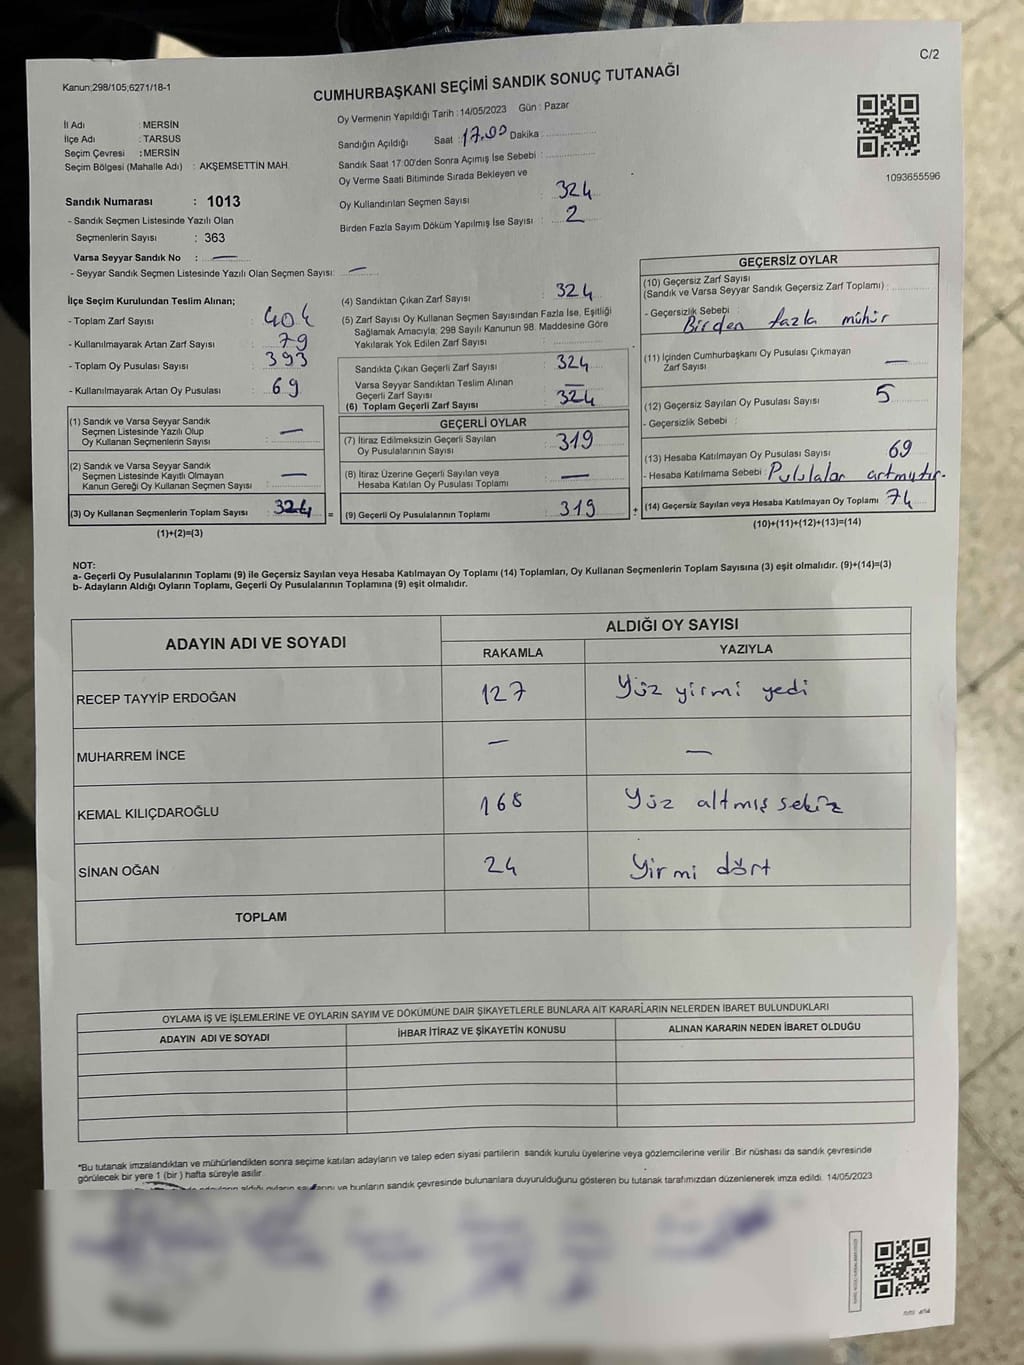 C/2
Kanun;298/105,6271/18-1
CUMHURBAŞKANI SEÇİMİ SANDIK SONUÇ TUTANAĞI
İl Adı : MERSİN
İlçe Adı : TARSUS
Seçim Çevresi : MERSİN
Seçim Bölgesi (Mahalle Adı) : AKŞEMSETTİN MAH.
Sandık Numarası : 1013
- Sandık Seçmen Listesinde Yazılı Olan
Seçmenlerin Sayısı : 363
Varsa Seyyar Sandık No : —
- Seyyar Sandık Seçmen Listesinde Yazılı Olan Seçmen Sayısı: —
Oy Vermenin Yapıldığı Tarih : 14/05/2023 Gün : Pazar
Sandığın Açıldığı Saat : 17.00 Dakika :
Sandık Saat 17:00'den Sonra Açımış İse Sebebi :
Oy Verme Saati Bitiminde Sırada Bekleyen ve
Oy Kullandırılan Seçmen Sayısı : 324
Birden Fazla Sayım Döküm Yapılmış İse Sayısı : 2
1093655596
İlçe Seçim Kurulundan Teslim Alınan;
- Toplam Zarf Sayısı : 404
- Kullanılmayarak Artan Zarf Sayısı : 79
- Toplam Oy Pusulası Sayısı : 393
- Kullanılmayarak Artan Oy Pusulası : 69
(1) Sandık ve Varsa Seyyar Sandık
Seçmen Listesinde Yazılı Olup
Oy Kullanan Seçmenlerin Sayısı : —
(2) Sandık ve Varsa Seyyar Sandık
Seçmen Listesinde Kayıtlı Olmayan
Kanun Gereği Oy Kullanan Seçmen Sayısı : —
(3) Oy Kullanan Seçmenlerin Toplam Sayısı : 324 =
(1)+(2)=(3)
(4) Sandıktan Çıkan Zarf Sayısı : 324
(5) Zarf Sayısı Oy Kullanan Seçmen Sayısından Fazla İse, Eşitliği
Sağlamak Amacıyla; 298 Sayılı Kanunun 98. Maddesine Göre
Yakılarak Yok Edilen Zarf Sayısı :
Sandıkta Çıkan Geçerli Zarf Sayısı : 324
Varsa Seyyar Sandıktan Teslim Alınan
Geçerli Zarf Sayısı : —
(6) Toplam Geçerli Zarf Sayısı : 324
GEÇERLİ OYLAR
(7) İtiraz Edilmeksizin Geçerli Sayılan
Oy Pusulalarının Sayısı : 319
(8) İtiraz Üzerine Geçerli Sayılan veya
Hesaba Katılan Oy Pusulası Toplamı : —
(9) Geçerli Oy Pusulalarının Toplamı : 319 +
GEÇERSİZ OYLAR
(10) Geçersiz Zarf Sayısı
(Sandık ve Varsa Seyyar Sandık Geçersiz Zarf Toplamı) :
- Geçersizlik Sebebi :
Birden fazla mühür
(11) İçinden Cumhurbaşkanı Oy Pusulası Çıkmayan
Zarf Sayısı : —
(12) Geçersiz Sayılan Oy Pusulası Sayısı : 5
- Geçersizlik Sebebi :
(13) Hesaba Katılmayan Oy Pusulası Sayısı : 69
- Hesaba Katılmama Sebebi : Pululalar artmıştır.
(14) Geçersiz Sayılan veya Hesaba Katılmayan Oy Toplamı : 74
(10)+(11)+(12)+(13)=(14)
NOT:
a- Geçerli Oy Pusulalarının Toplamı (9) ile Geçersiz Sayılan veya Hesaba Katılmayan Oy Toplamı (14) Toplamları, Oy Kullanan Seçmenlerin Toplam Sayısına (3) eşit olmalıdır. (9)+(14)=(3)
b- Adayların Aldığı Oyların Toplamı, Geçerli Oy Pusulalarının Toplamına (9) eşit olmalıdır.
ADAYIN ADI VE SOYADI ALDIĞI OY SAYISI
RAKAMLA YAZIYLA
RECEP TAYYİP ERDOĞAN 127 Yüz yirmi yedi
MUHARREM İNCE — —
KEMAL KILIÇDAROĞLU 168 Yüz altmış sekiz
SİNAN OĞAN 24 Yirmi dört
TOPLAM
OYLAMA İŞ VE İŞLEMLERİNE VE OYLARIN SAYIM VE DÖKÜMÜNE DAİR ŞİKAYETLERLE BUNLARA AİT KARARLARIN NELERDEN İBARET BULUNDUKLARI
ADAYIN ADI VE SOYADI İHBAR İTİRAZ VE ŞİKAYETİN KONUSU ALINAN KARARIN NEDEN İBARET OLDUĞU
*Bu tutanak imzalandıktan ve mühürlendikten sonra seçime katılan adayların ve talep eden siyasi partilerin sandık kurulu üyelerine veya gözlemcilerine verilir .Bir nüshası da sandık çevresinde
görülecek bir yere 1 (bir ) hafta süreyle asılır.
adayların aldığı oyların sayılarını ve bunların sandık çevresinde bulunanlara duyurulduğunu gösteren bu tutanak tarafımızdan düzenlenerek imza edildi. 14/05/2023